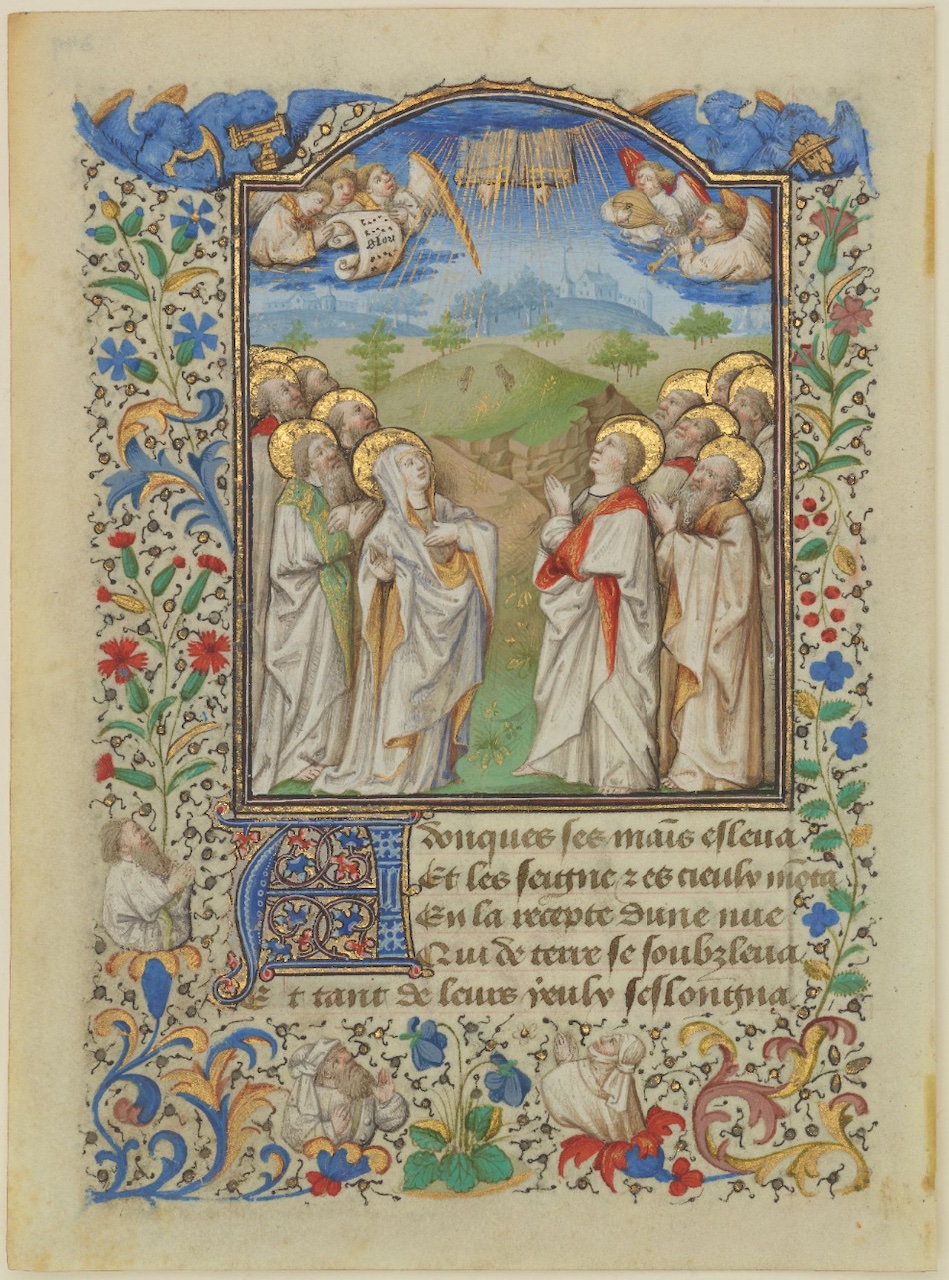 Glori
Adonques ses maīs esleva
Et les seigne z es cieulx mōta
En la recepte dune nue
Qui de terre se soubzleva
Et tant de leurs yeulx seslongna